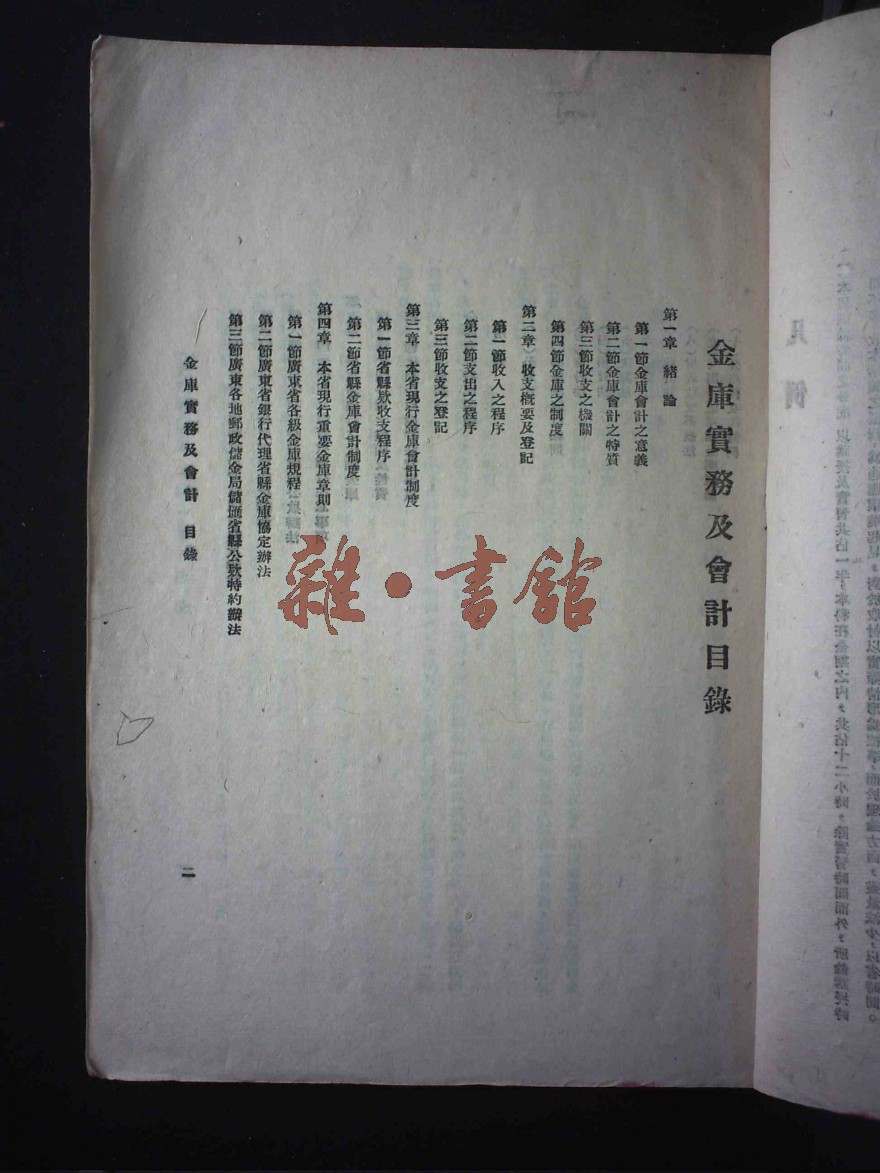 金庫實務及會計目錄
第一章　緒　論
第一節金庫會計之意義
第二節金庫會計之特質
第三節收支之機關
第四節金庫之制度
第二章　收支概要及登記
第一節收入之程序
第二節支出之程序
第三節收支之登記
第三章　本省現行金庫會計制度
第一節省縣欵收支程序
第二節省縣金庫會計制度
第四章　本省現行重要金庫章則
第一節廣東省各級金庫規程
第二節廣東省銀行代理省縣金庫協定辦法
第三節廣東各地郵政儲金局儲匯省縣公欵特約辦法
金庫實務及會計　目錄
二
雜·書館
凡例